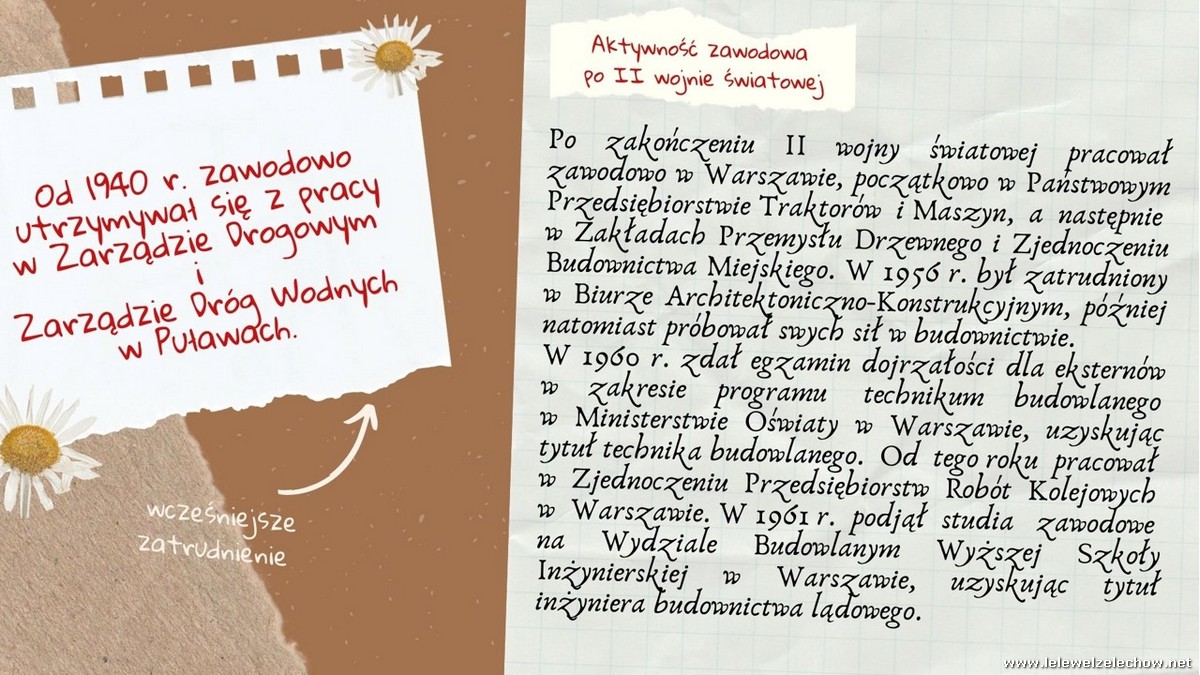 Od 1940 r. zawodowo
utrzymywał się z pracy
w Zarządzie Drogowym
i
Zarządzie Dróg Wodnych
w Puławach.
wcześniejsze
zatrudnienie
Aktywność zawodowa
po II wojnie światowej
Po zakończeniu II wojny światowej pracował
zawodowo w Warszawie, początkowo w Państwowym
Przedsiębiorstwie Traktorów i Maszyn, a następnie
w Zakładach Przemysłu Drzewnego i Zjednoczeniu
Budownictwa Miejskiego. W 1956 r. był zatrudniony
w Biurze Architektoniczno-Konstrukcyjnym, później
natomiast próbował swych sił w budownictwie.
W 1960 r. zdał egzamin dojrzałości dla eksternów
w zakresie programu technikum budowlanego
w Ministerstwie Oświaty w Warszawie, uzyskując
tytuł technika budowlanego. Od tego roku pracował
w Zjednoczeniu Przedsiębiorstw Robót Kolejowych
w Warszawie. W 1961 r. podjął studia zawodowe
na Wydziale Budowlanym Wyższej Szkoły
Inżynierskiej w Warszawie, uzyskując tytuł
inżyniera budownictwa lądowego.
www.lelewelzelechow.net